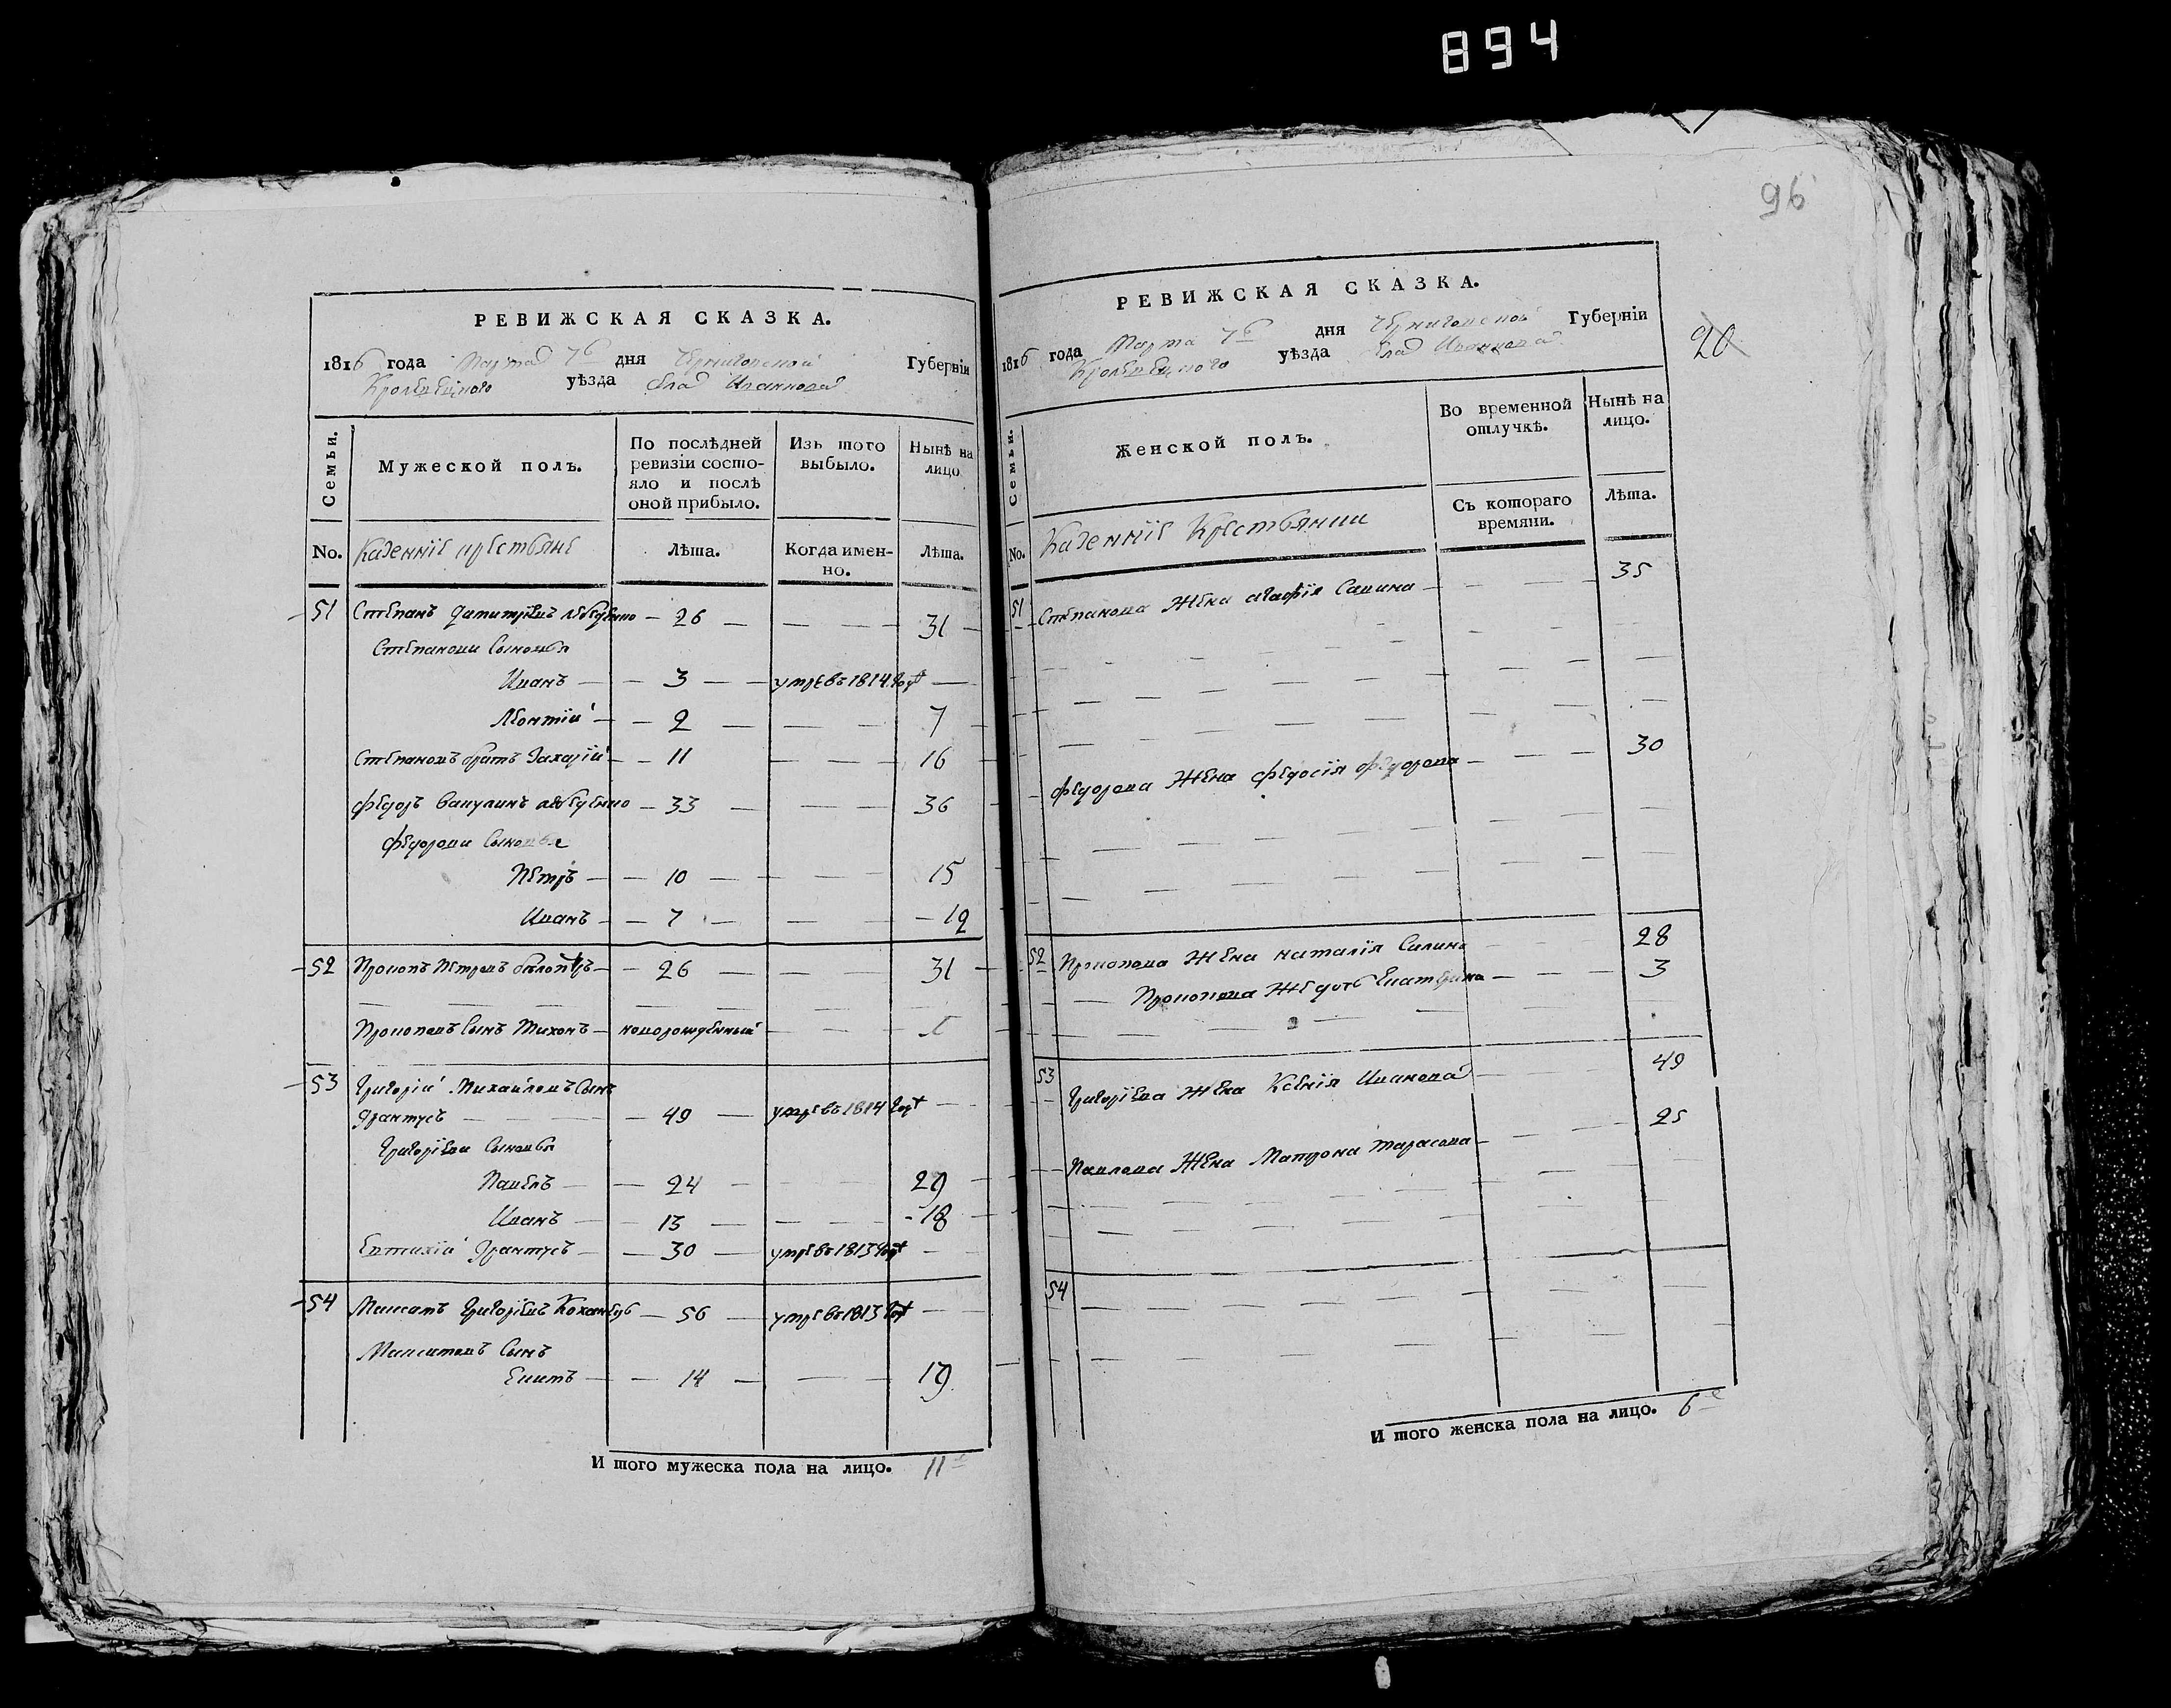 894
96
РЕВИЖСКАЯ СКАЗКА.
1816 года Марта 7го дня Черниговской Губерніи
Кролевецкого уѣзда села Иванкова
Семьи.
Мужеской полъ.
По послѣдней ревизіи состояло и послѣ оной прибыло.
Изъ того выбыло.
Нынѣ на лицо
No. Казенніе крестьяне
Лѣта.
Когда именно.
Лѣта.
51 Степанъ Димитріевъ — 26 — 31
Степанови Сыновья
Иванъ — 3 — умре въ 1814 году
Леонтій — 2 — 7
Степановъ братъ Захарій — 11 — 16
Федоръ — 33 — 36
Федорови Сыновья
Петръ — 10 — 15
Иванъ — 7 — 12
52 Прокопъ Петровъ — 26 — 31
Прокоповъ Сынъ Тихонъ — новорожденный
53 Григорій Михайловъ Сынъ
— 49 — умре въ 1814 году
Григоріеви Сыновья
Павелъ — 24 — 29
Иванъ — 13 — 18
Евтихій — 30 — умре въ 1813 году
54 Григоріевъ — 56 — умре въ 1813 году
Сынъ
— 14 — 19
И того мужеска пола на лицо. 11
РЕВИЖСКАЯ СКАЗКА.
1816 года Марта 7го дня Черниговской Губерніи
Кролевецкого уѣзда села Иванкова
20
Семьи.
Женской полъ.
Во временной отлучкѣ.
Нынѣ на лицо.
Съ котораго времяни.
Лѣта.
No. Казенніе Крестьянки
51 Степанова Жена Агафія Савина — 35
Федорова Жена Федосія Федорова — 30
52 Прокопова Жена Наталія — 28
Прокопова Жедочь Екатерина — 3
53 Григоріева Жена Ксенія Иванова — 49
Павлова Жена Матрона Тарасова — 25
54
И того женска пола на лицо. 6